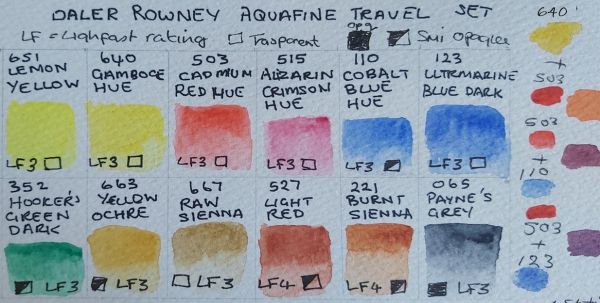 DALER ROWNEY AQUAFINE TRAVEL SET
LF = Lighfast rating Trasparent opq Smi opaqlee
651 LEMON YELLOW
LF3
640 GAMBOGE HUE
LF3
503 CADMIUM RED HUE
LF3
515 ALIZARIN CRIMSON HUE
LF3
110 COBALT BLUE HUE
LF3
123 ULTRMARINE BLUE DARK
LF3
352 HOOKER'S GREEN DARK
LF3
663 YELLOW OCHRE
LF3
667 RAW SIENNA
LF3
527 LIGHT RED
LF4
221 BURNT SIENNA
LF4
065 PAYNE'S GREY
LF3
640
+
503
503
+
110
503
+
123